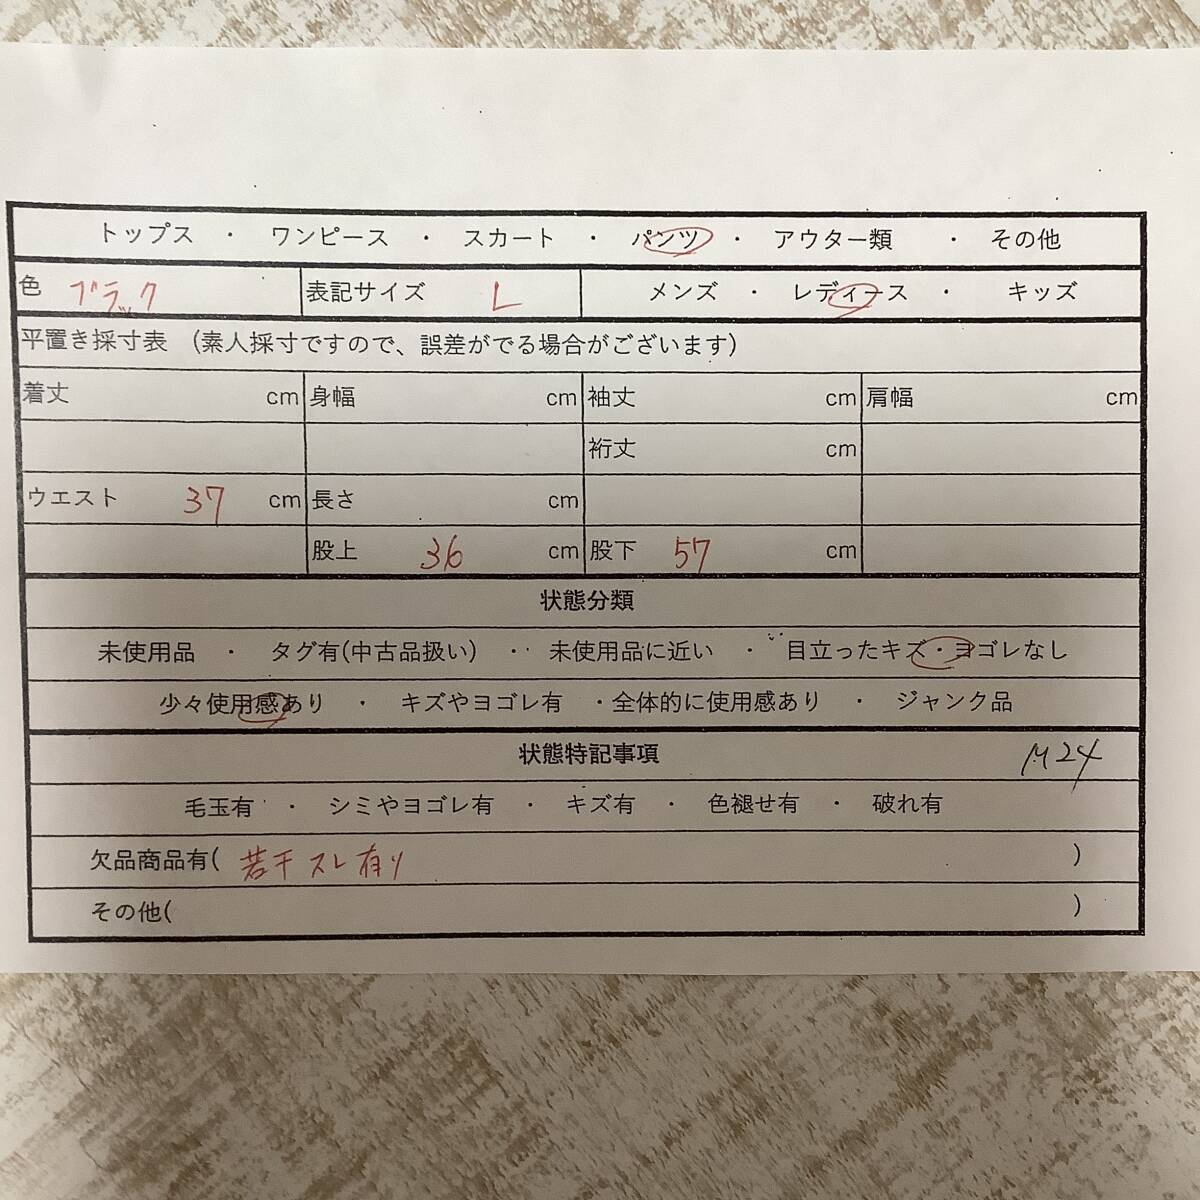 トップス ・ ワンピース ・ スカート ・ パンツ ・ アウター類 ・ その他
色 ブラック 表記サイズ L メンズ ・ レディース ・ キッズ
平置き採寸表 (素人採寸ですので、誤差がでる場合がございます)
着丈 cm 身幅 cm 袖丈 cm 肩幅 cm
裄丈 cm
ウエスト 37 cm 長さ cm
股上 36 cm 股下 57 cm
状態分類
未使用品 ・ タグ有(中古品扱い) ・ 未使用品に近い ・ 目立ったキズ・ヨゴレなし
少々使用感あり ・ キズやヨゴレ有 ・全体的に使用感あり ・ ジャンク品
状態特記事項 M24
毛玉有 ・ シミやヨゴレ有 ・ キズ有 ・ 色褪せ有 ・ 破れ有
欠品商品有( 若干スレ有り )
その他( )